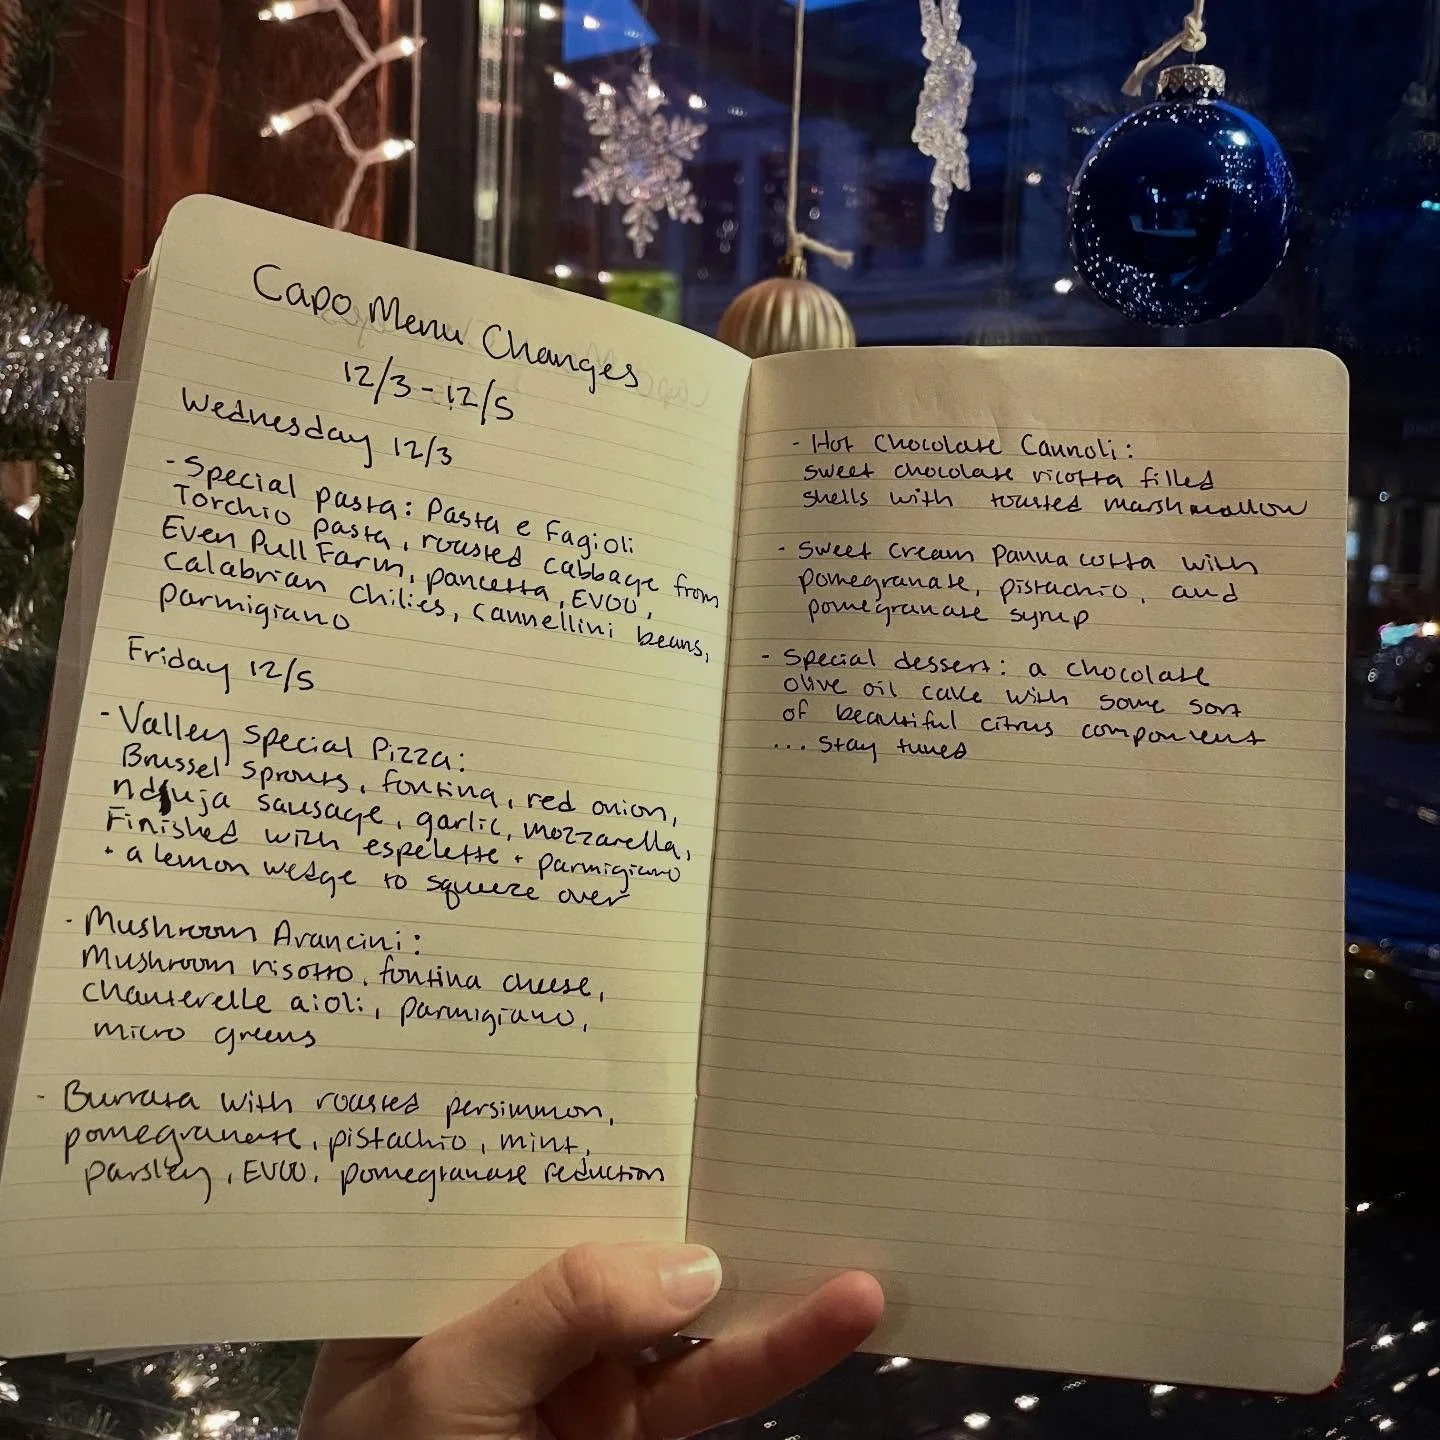 Capo Menu Changes
12/3 - 12/5
Wednesday 12/3
- Special pasta: Pasta e Fagioli
Torchio pasta, roasted cabbage from
Even Pull Farm, pancetta, EVOO,
Calabrian chilies, cannellini beans,
parmigiano
Friday 12/5
- Valley Special Pizza:
Brussel sprouts, fontina, red onion,
nduja sausage, garlic, mozzarella,
Finished with espelette + parmigiano
+ a lemon wedge to squeeze over
- Mushroom Arancini:
Mushroom risotto, fontina cheese,
chanterelle aioli, parmigiano,
micro greens
- Burrata with roasted persimmon,
pomegranate, pistachio, mint,
parsley, EVOO, pomegranate reduction
- Hot Chocolate Cannoli:
sweet chocolate ricotta filled
shells with toasted marshmallow
- Sweet cream panna cotta with
pomegranate, pistachio, and
pomegranate syrup
- Special dessert: a chocolate
olive oil cake with some sort
of beautiful citrus component
... stay tuned